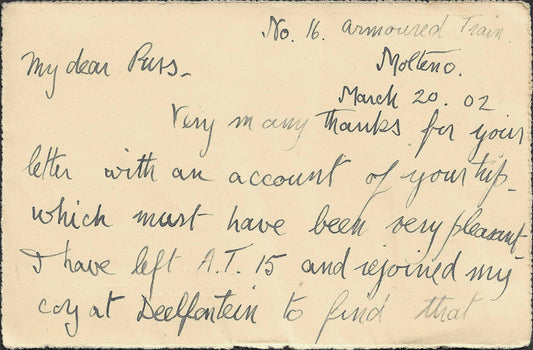 No. 16. Armoured Train.
Molteno.
My dear Puss_
March 20. 02
Very many thanks for your
letter with an account of your trip_
which must have been very pleasant_
I have left A.T. 15 and rejoined my
coy at Deelfontein to find that